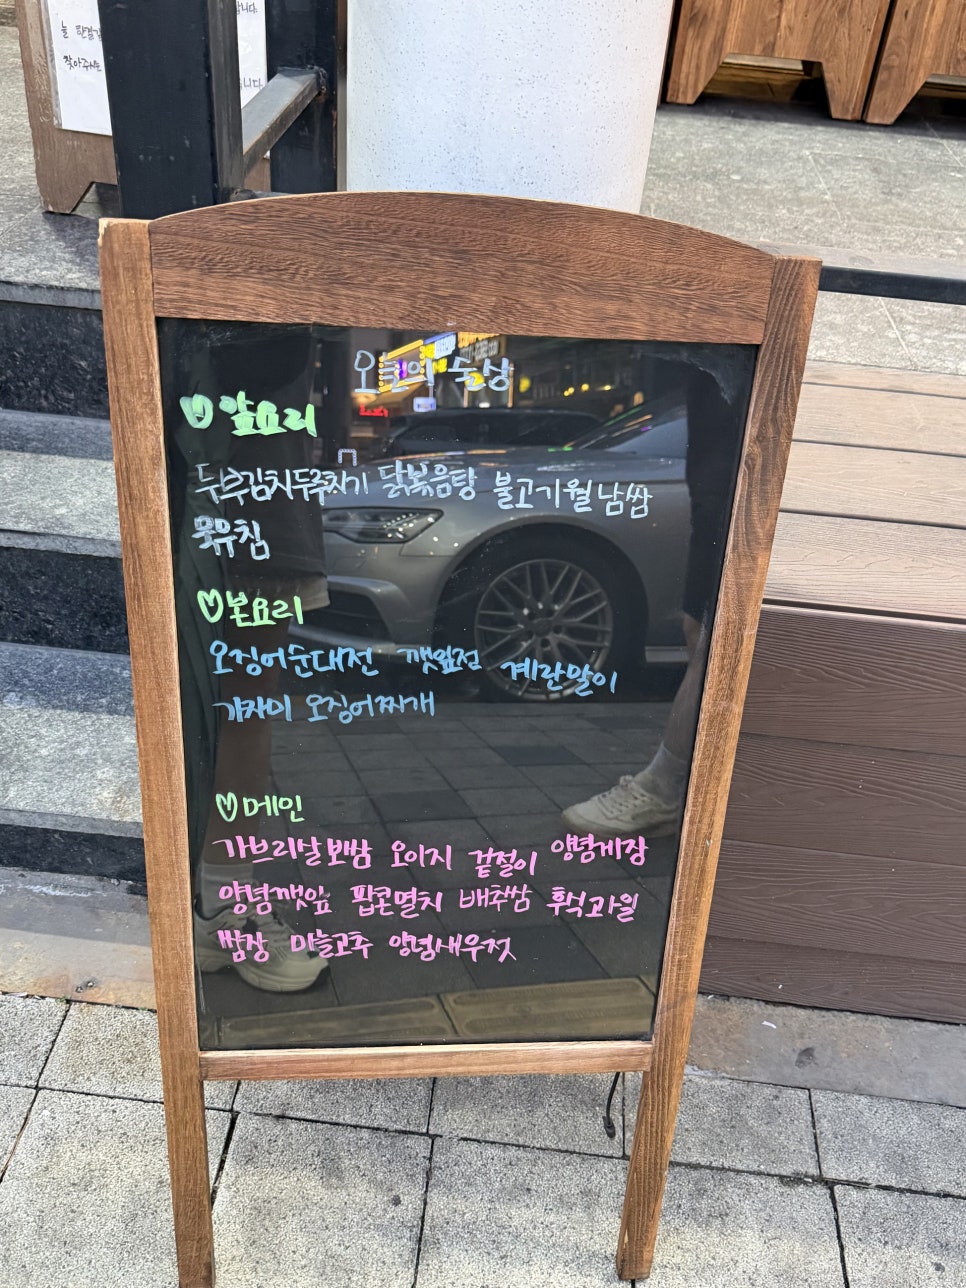 늘
찾아주시는
오늘의 술상
앞요리
두부김치두루치기 닭볶음탕 불고기월남쌈
묵무침
본요리
오징어순대전 깻잎전 계란말이
가자미 오징어찌개
메인
가브리살보쌈 오이지 겉절이 양념게장
양념깻잎 팝콘멸치 배추쌈 후식과일
쌈장 마늘고추 양념새우젓